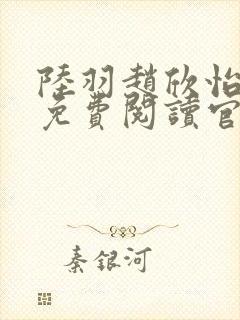 陸羽趙欣怡
免費閱讀官
秦銀河